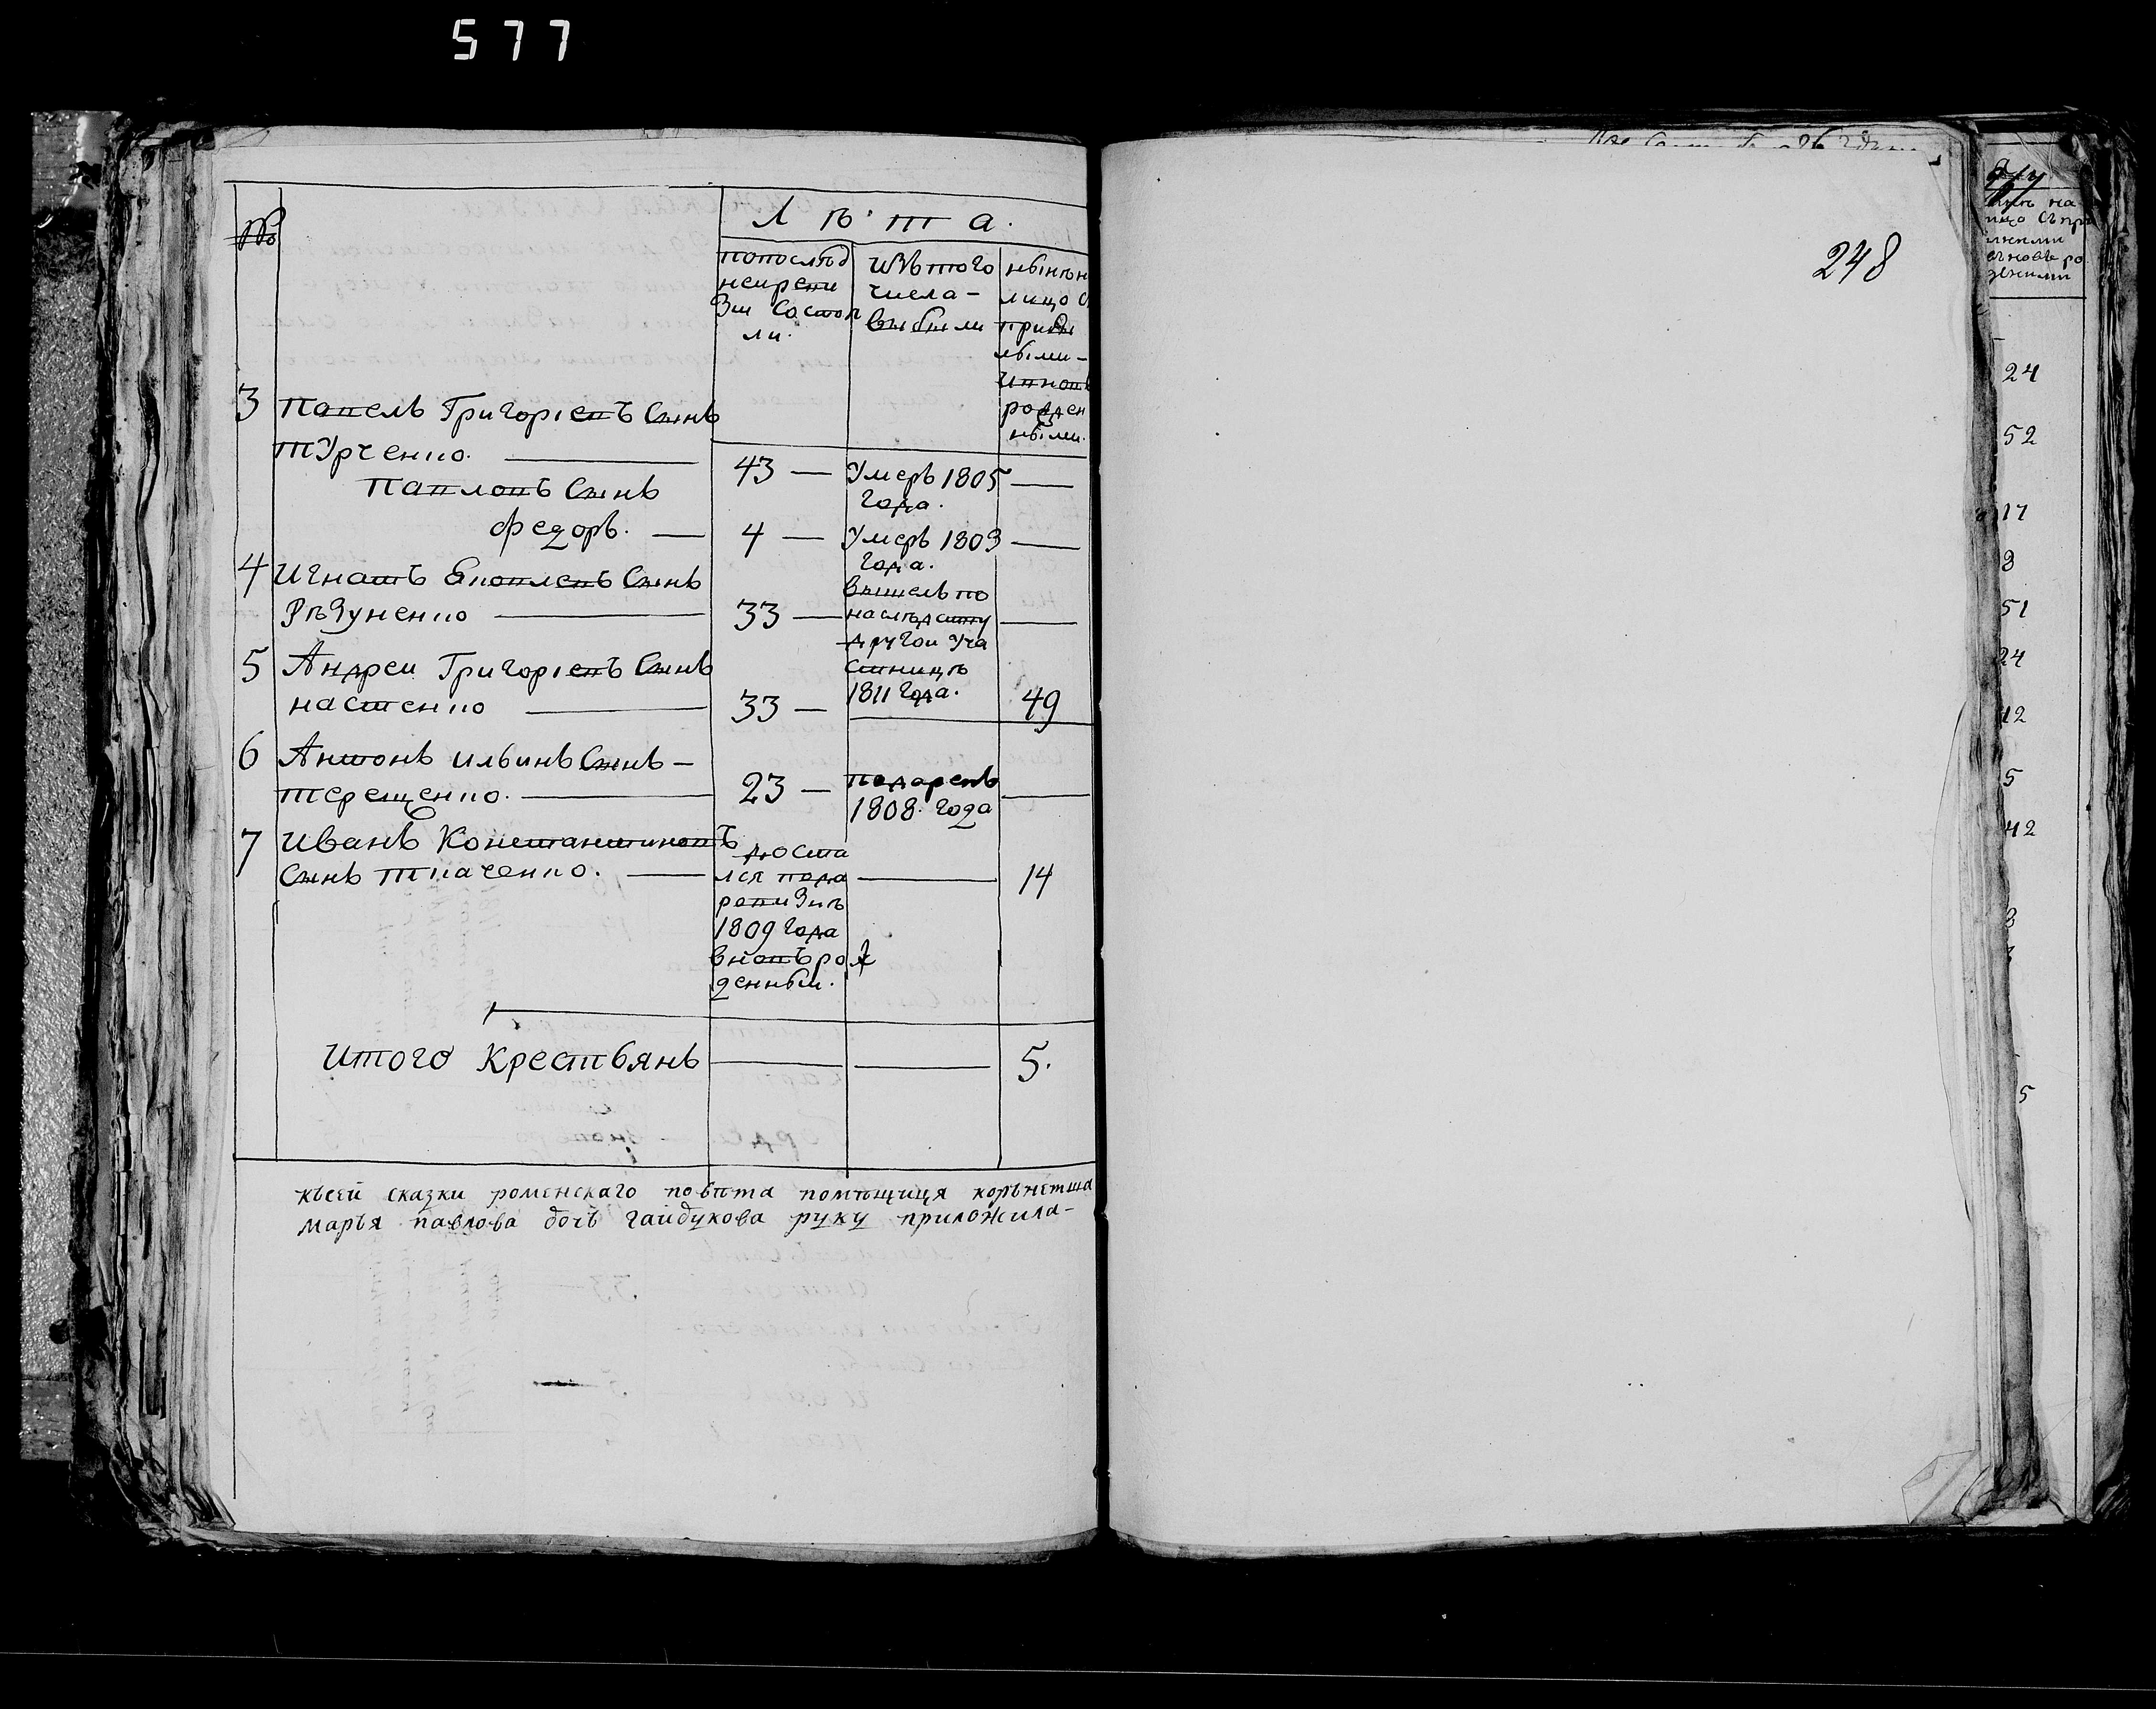 577
№
Лѣта.
попослѣд
неиреви
зіи состоя
ли.
Изътого
числа –
выбыли
нынѣн
лицо с
прибы
лыми –
ивнов
рожден
ными.
3 Павелъ Григоріевъ Сынъ
Турченко.
43 — Умеръ 1805 —
года.
Павловъ Сынъ
Федоръ. — 4 — Умеръ 1803 —
года.
4 Игнатъ Сынъ
Рѣзуненко — 33 —
вышелъ по
наслѣдству
другои уча
стницѣ
1811 года.
5 Андреи Григоріевъ Сынъ
Настенко — 33 — 49
6 Антонъ Ильинъ Сынъ –
Терещенко. — 23 — подаренъ —
1808. года
7 Иванъ Константиновъ
Сынъ Ткаченко. —
доста
лся пода
ревизіи
1809 года
вновърож
денныи.
— 14
Итого Крестьянъ — — 5.
късей сказки роменскаго повѣта помѣщиця корънетша
маръя павлова дочь гаидукова руку приложила –
248
24
52
17
8
51
24
12
5
42
5